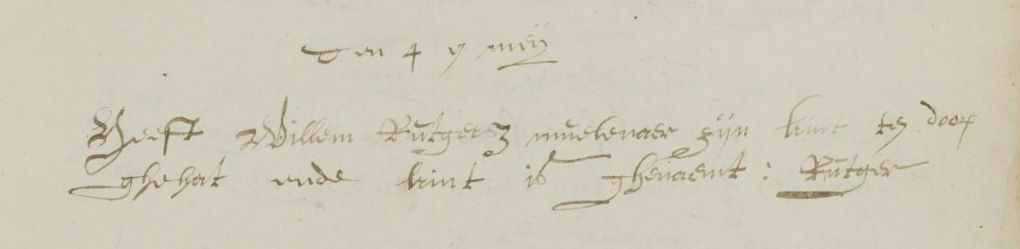 Den 4 meÿ
Heeft Willem Rutgersz muelenaer zÿn kint ten doop
ghehat ende kint is ghenaemt : Rutger